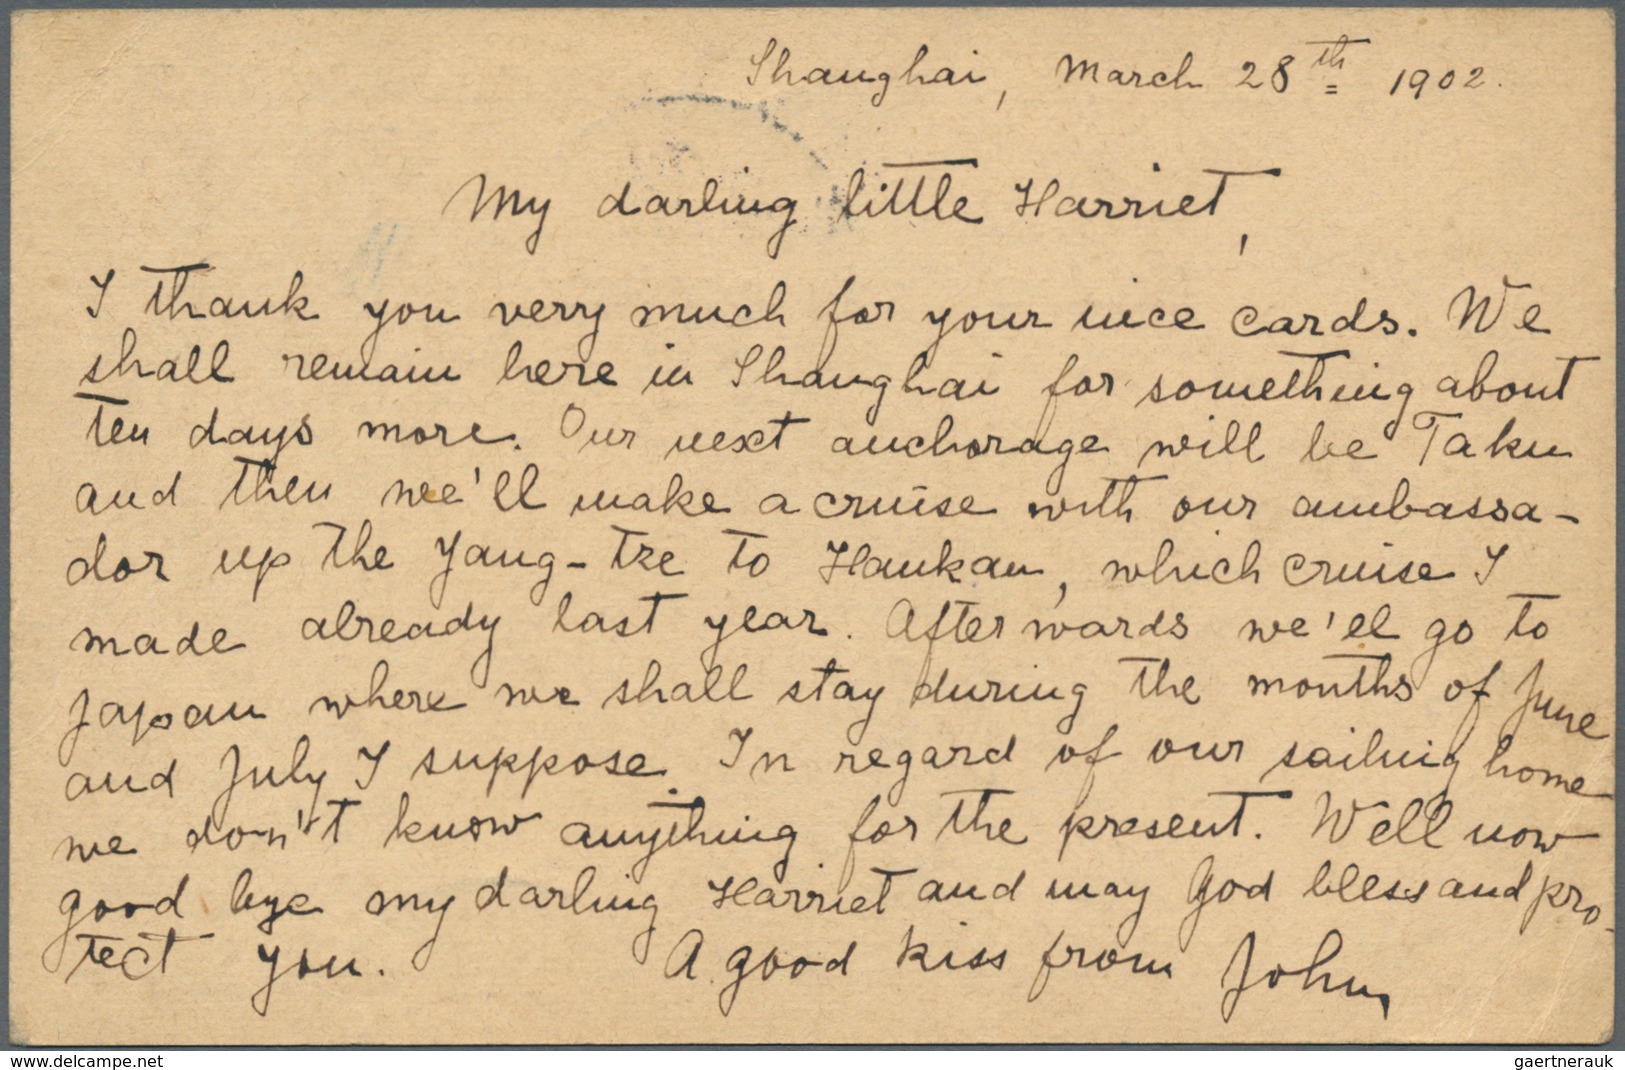 Shanghai, March 28th 1902.
My darling little Harriet,
I thank you very much for your nice cards. We
shall remain here in Shanghai for something about
ten days more. Our next anchorage will be Taku
and then we'll make a cruise with our ambassa-
dor up the Yang-tze to Hankau, which cruise I
made already last year. Afterwards we'll go to
Japan where we shall stay during the months of June
and July I suppose. In regard of our sailing home
we don't know anything for the present. Well now
good bye my darling Harriet and may God bless and pro-
tect you. A good kiss from John
www.delcampe.net
gaertnerauk